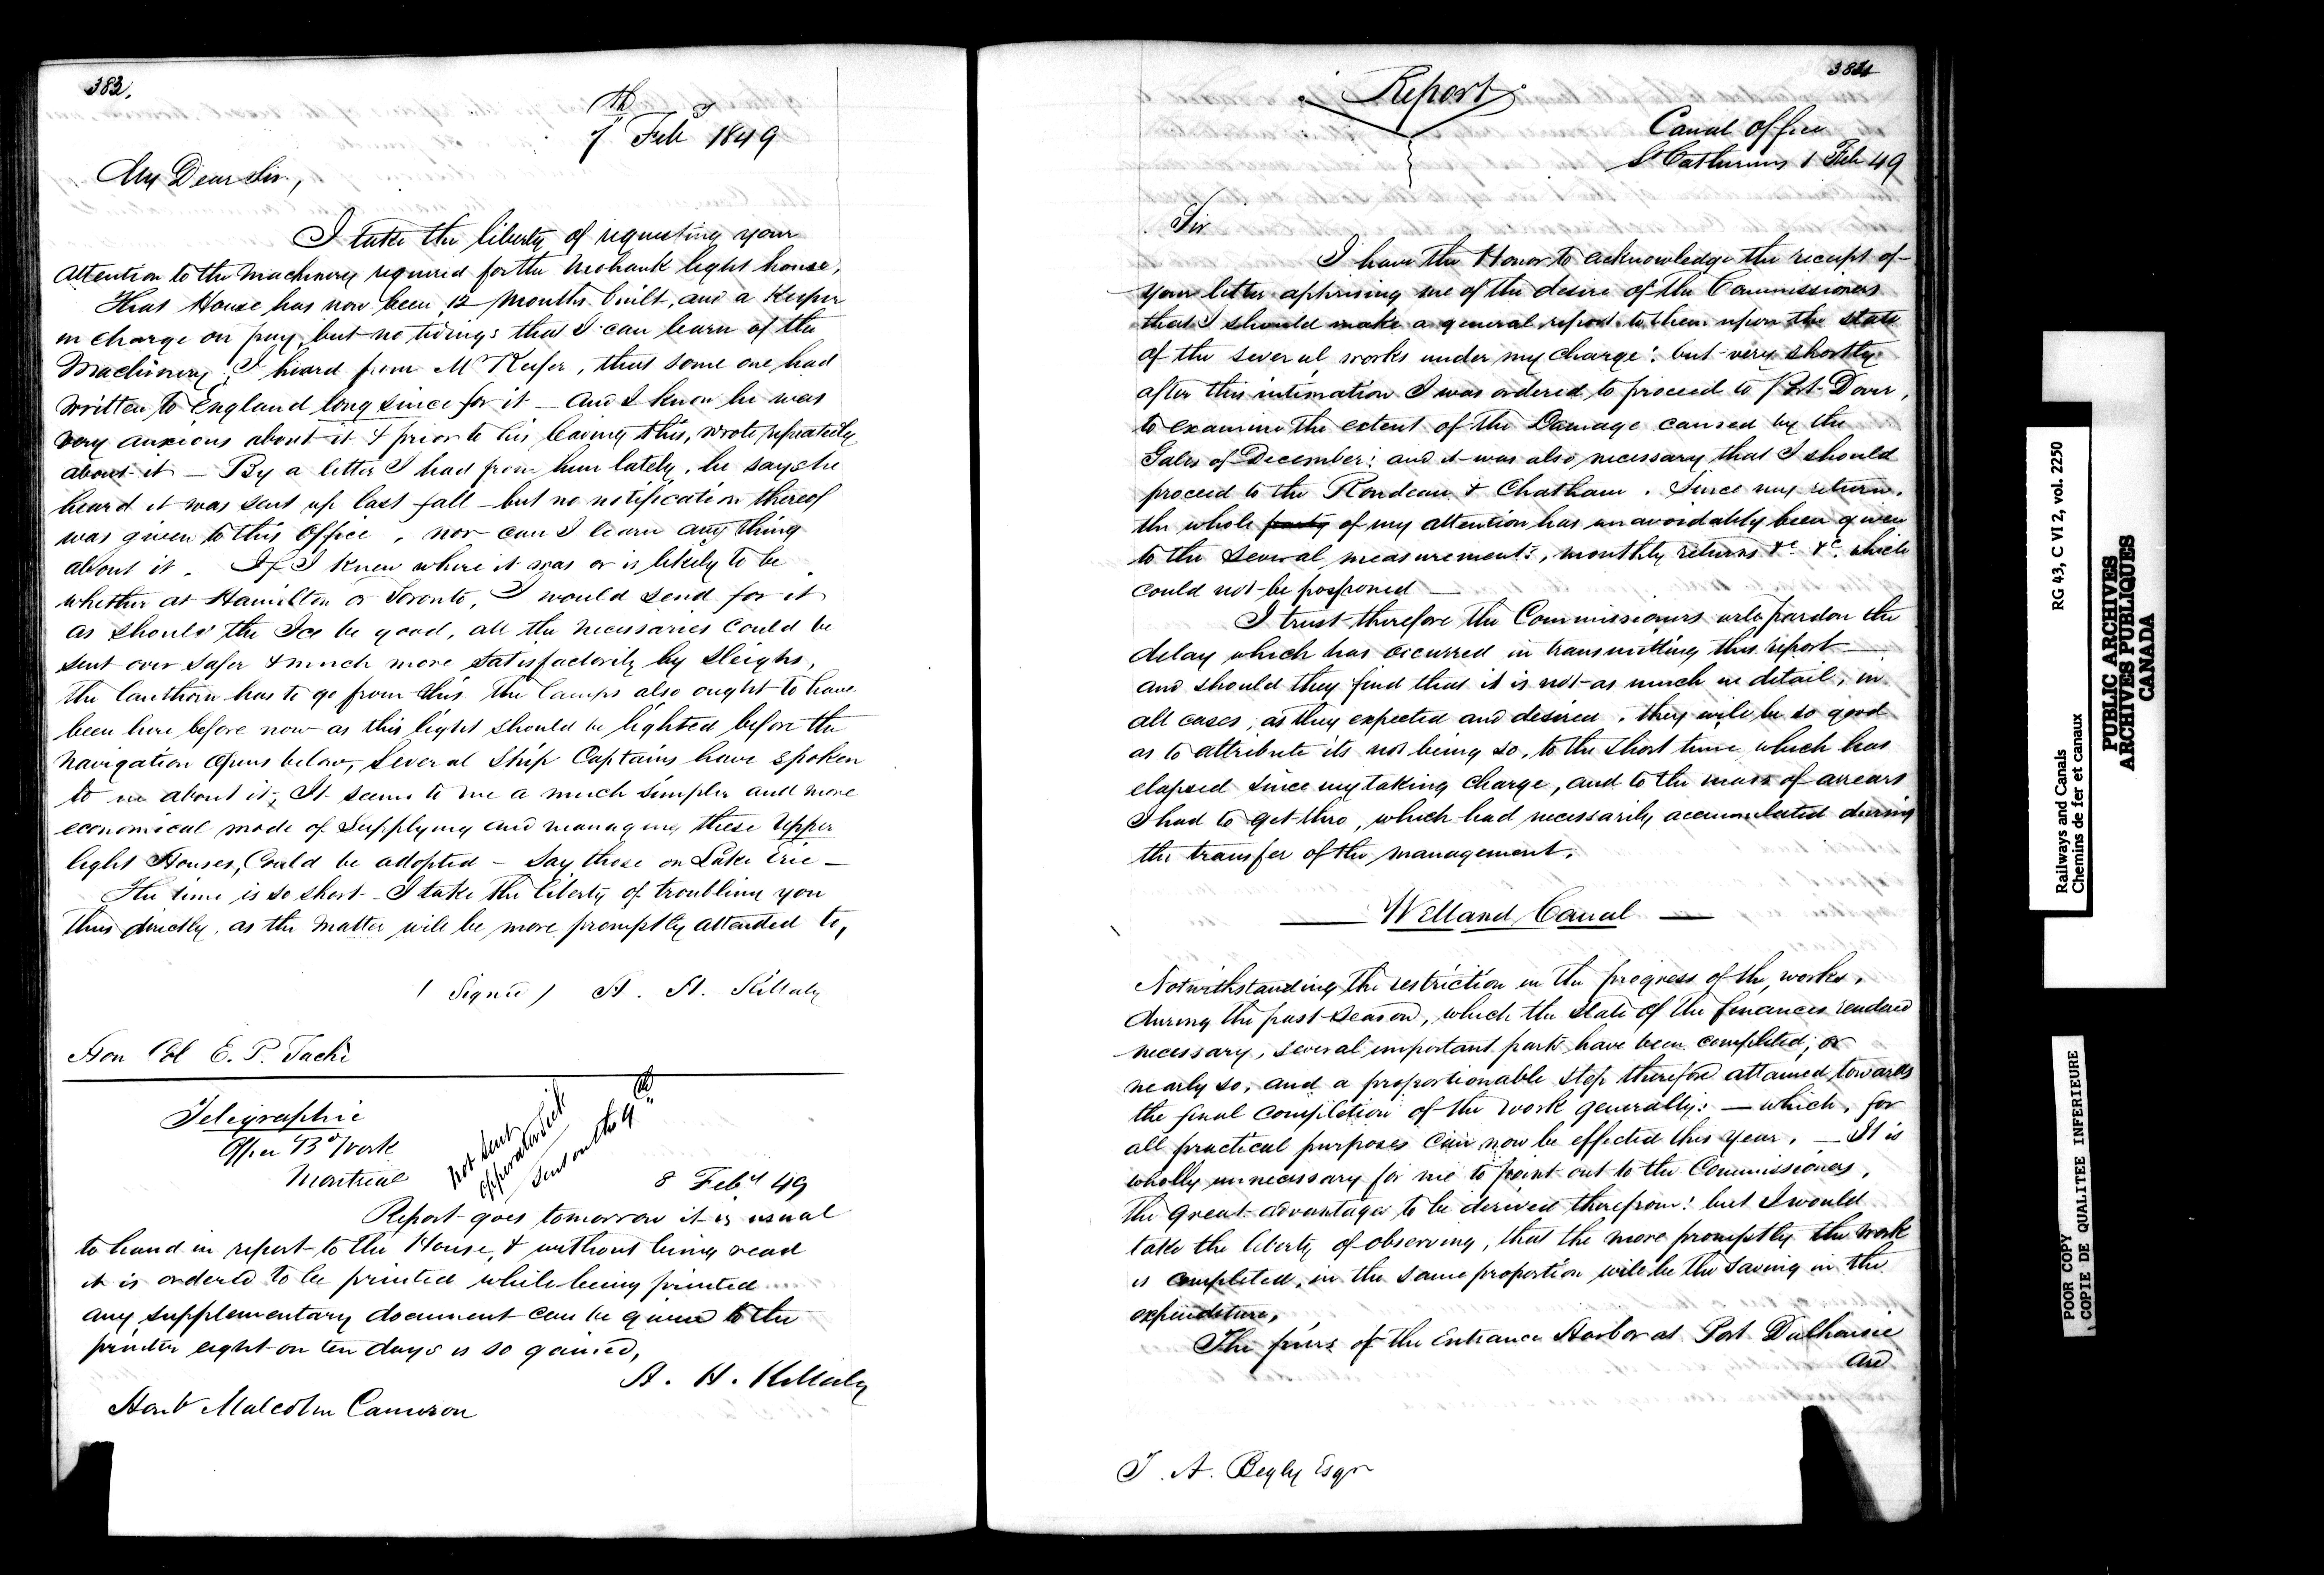 383.
7th Feby 1849
My Dear Sir,
I take the liberty of requesting your
attention to the Machinery required for the Mohawk light house,
That House has now been 12 Months built, and a Keeper
in charge on pay, but no tidings that I can learn of the
Machinery, I heard from Mr Keefer, that some one had
written to England long since for it – and I know he was
very anxious about it & prior to his leaving this, wrote repeatedly
about it – By a letter I had from him lately, he says he
heard it was sent up last fall – but no notification thereof
was given to this Office, nor can I learn any thing
about it. If I knew where it was or is likely to be
whether at Hamilton or Toronto, I would send for it
as should the Ice be good, all the necessaries could be
sent over safer & much more satisfactorily by Sleighs,
the Lanthorn has to go from this the Lamps also ought to have
been here before now as this light should be lighted before the
Navigation opens below, Several Ship Captains have spoken
to me about it, It seems to me a much simpler and more
economical mode of Supplying and managing these Upper
light Houses, Could be adopted – Say those on Lake Erie –
The time is so short – I take the liberty of troubling you
thus directly, as the Matter will be more promptly attended to,
( Signed ) H. H. Killaly
Hon Col E. P. Taché
Telegraphic
Office Bd Work
Montreal
Not Sent
Opperator Sick
Sent on the 9th
8 Feby 49
Report goes tomorrow it is usual
to hand in report to the House, & without being read
it is ordered to be printed while being printed
any supplementary document can be given to the
printer eight or ten days is so gained,
H. H. Killaly
Honb Malcolm Cameron
384
Report
Canal Office
St Catharines 1 Feb 49
Sir
I have the Honor to acknowledge the receipt of
your letter apprising me of the desire of the Commissioners
that I should make a general report to them upon the state
of the several works under my charge: but very shortly
after this intimation I was ordered to proceed to Port Dover,
to examine the extent of the Damage caused by the
Gales of December: and it was also necessary that I should
proceed to the Rondeau & Chatham. Since my return,
the whole party of my attention has unavoidably been given
to the several measurements, monthly returns &c &c. which
could not be posponed —
I trust therefore the Commissioners will pardon the
delay which has occurred in transmitting this report —
and should they find that it is not as much in detail, in
all cases, as they expected and desired, they will be so good
as to attribute its not being so, to the short time which has
elapsed since my taking charge, and to the mass of arrears
I had to get thro, which had necessarily accumulated during
the transfer of the management.
— Welland Canal —
Notwithstanding the restriction in the progress of the works,
during the past season, which the state of the finances rendered
necessary, several important parts have been completed, or
nearly so, and a proportionable step therefore attained towards
the final completion of the work generally: — which, for
all practical purposes can now be effected this year. — It is
wholly unnecessary for me to point out to the Commissioners,
the great advantages to be derived therefrom: but I would
take the liberty of observing, that the more promptly the work
is completed, in the same proportion will be the saving in the
expenditure,
The piers of the Entrance Harbor at Port Dalhousie
and
T. A. Begly Esqr
Railways and Canals
Chemins de fer et canaux
RG 43, C VI 2, vol. 2250
PUBLIC ARCHIVES
ARCHIVES PUBLIQUES
CANADA
POOR COPY
COPIE DE QUALITEE INFERIEURE